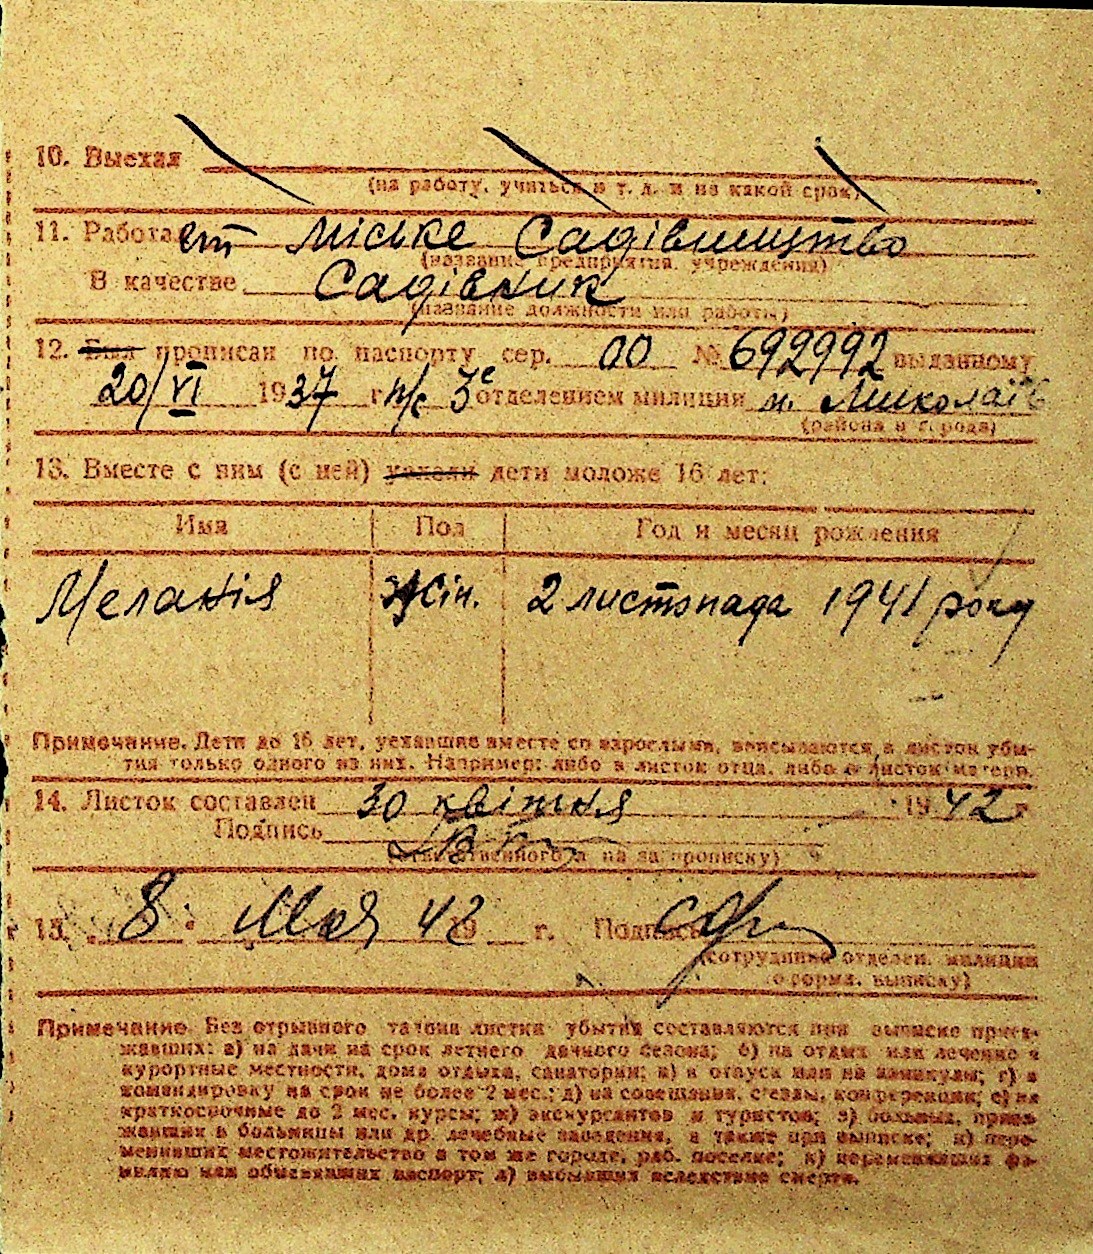 10. Выехал
(на работу, учиться и т. д. и на какой срок)
11. Работает Міське Садівництво
(название предприятия, учреждения)
В качестве Садівник
(название должности или работы)
12. Был прописан по паспорту сер. ОО № 692992 выданному
20/VI 1937 г. н/с 3е отделением милиции м. Миколаїв
(района и города)
13. Вместе с ним (с ней) уехали дети моложе 16 лет:
Имя Пол Год и месяц рождения
Меланія Жін. 2 листопада 1941 року
Примечание. Дети до 16 лет, уехавшие вместе со взрослыми, вписываются в листок убы-
тия только одного из них. Например: либо в листок отца, либо в листок матери.
14. Листок составлен 30 квітня 1942 г
Подпись
(ответственного за прописку)
15. 8 Мая 42 19 г. Подпись
(сотрудника отделен. милиции
оформ. выписку)
Примечание Без отрывного талона листки убытия составляются при выписке приез-
жавших: а) на дачи на срок летнего дачного сезона; б) на отдых или лечение в
курортные местности, дома отдыха, санатории; в) в отпуск или на каникулы; г) в
командировку на срок не более 2 мес.; д) на совещания, съезды, конференции; е) на
краткосрочные до 2 мес. курсы; ж) экскурсантов и туристов; з) больных, приез-
жавших в больницы или др. лечебные заведения, а также при выписке; и) пере-
менивших местожительство в том же городе, раб. поселке; к) переменивших фа-
милию или обменявших паспорт; л) выбывших вследствие смерти.